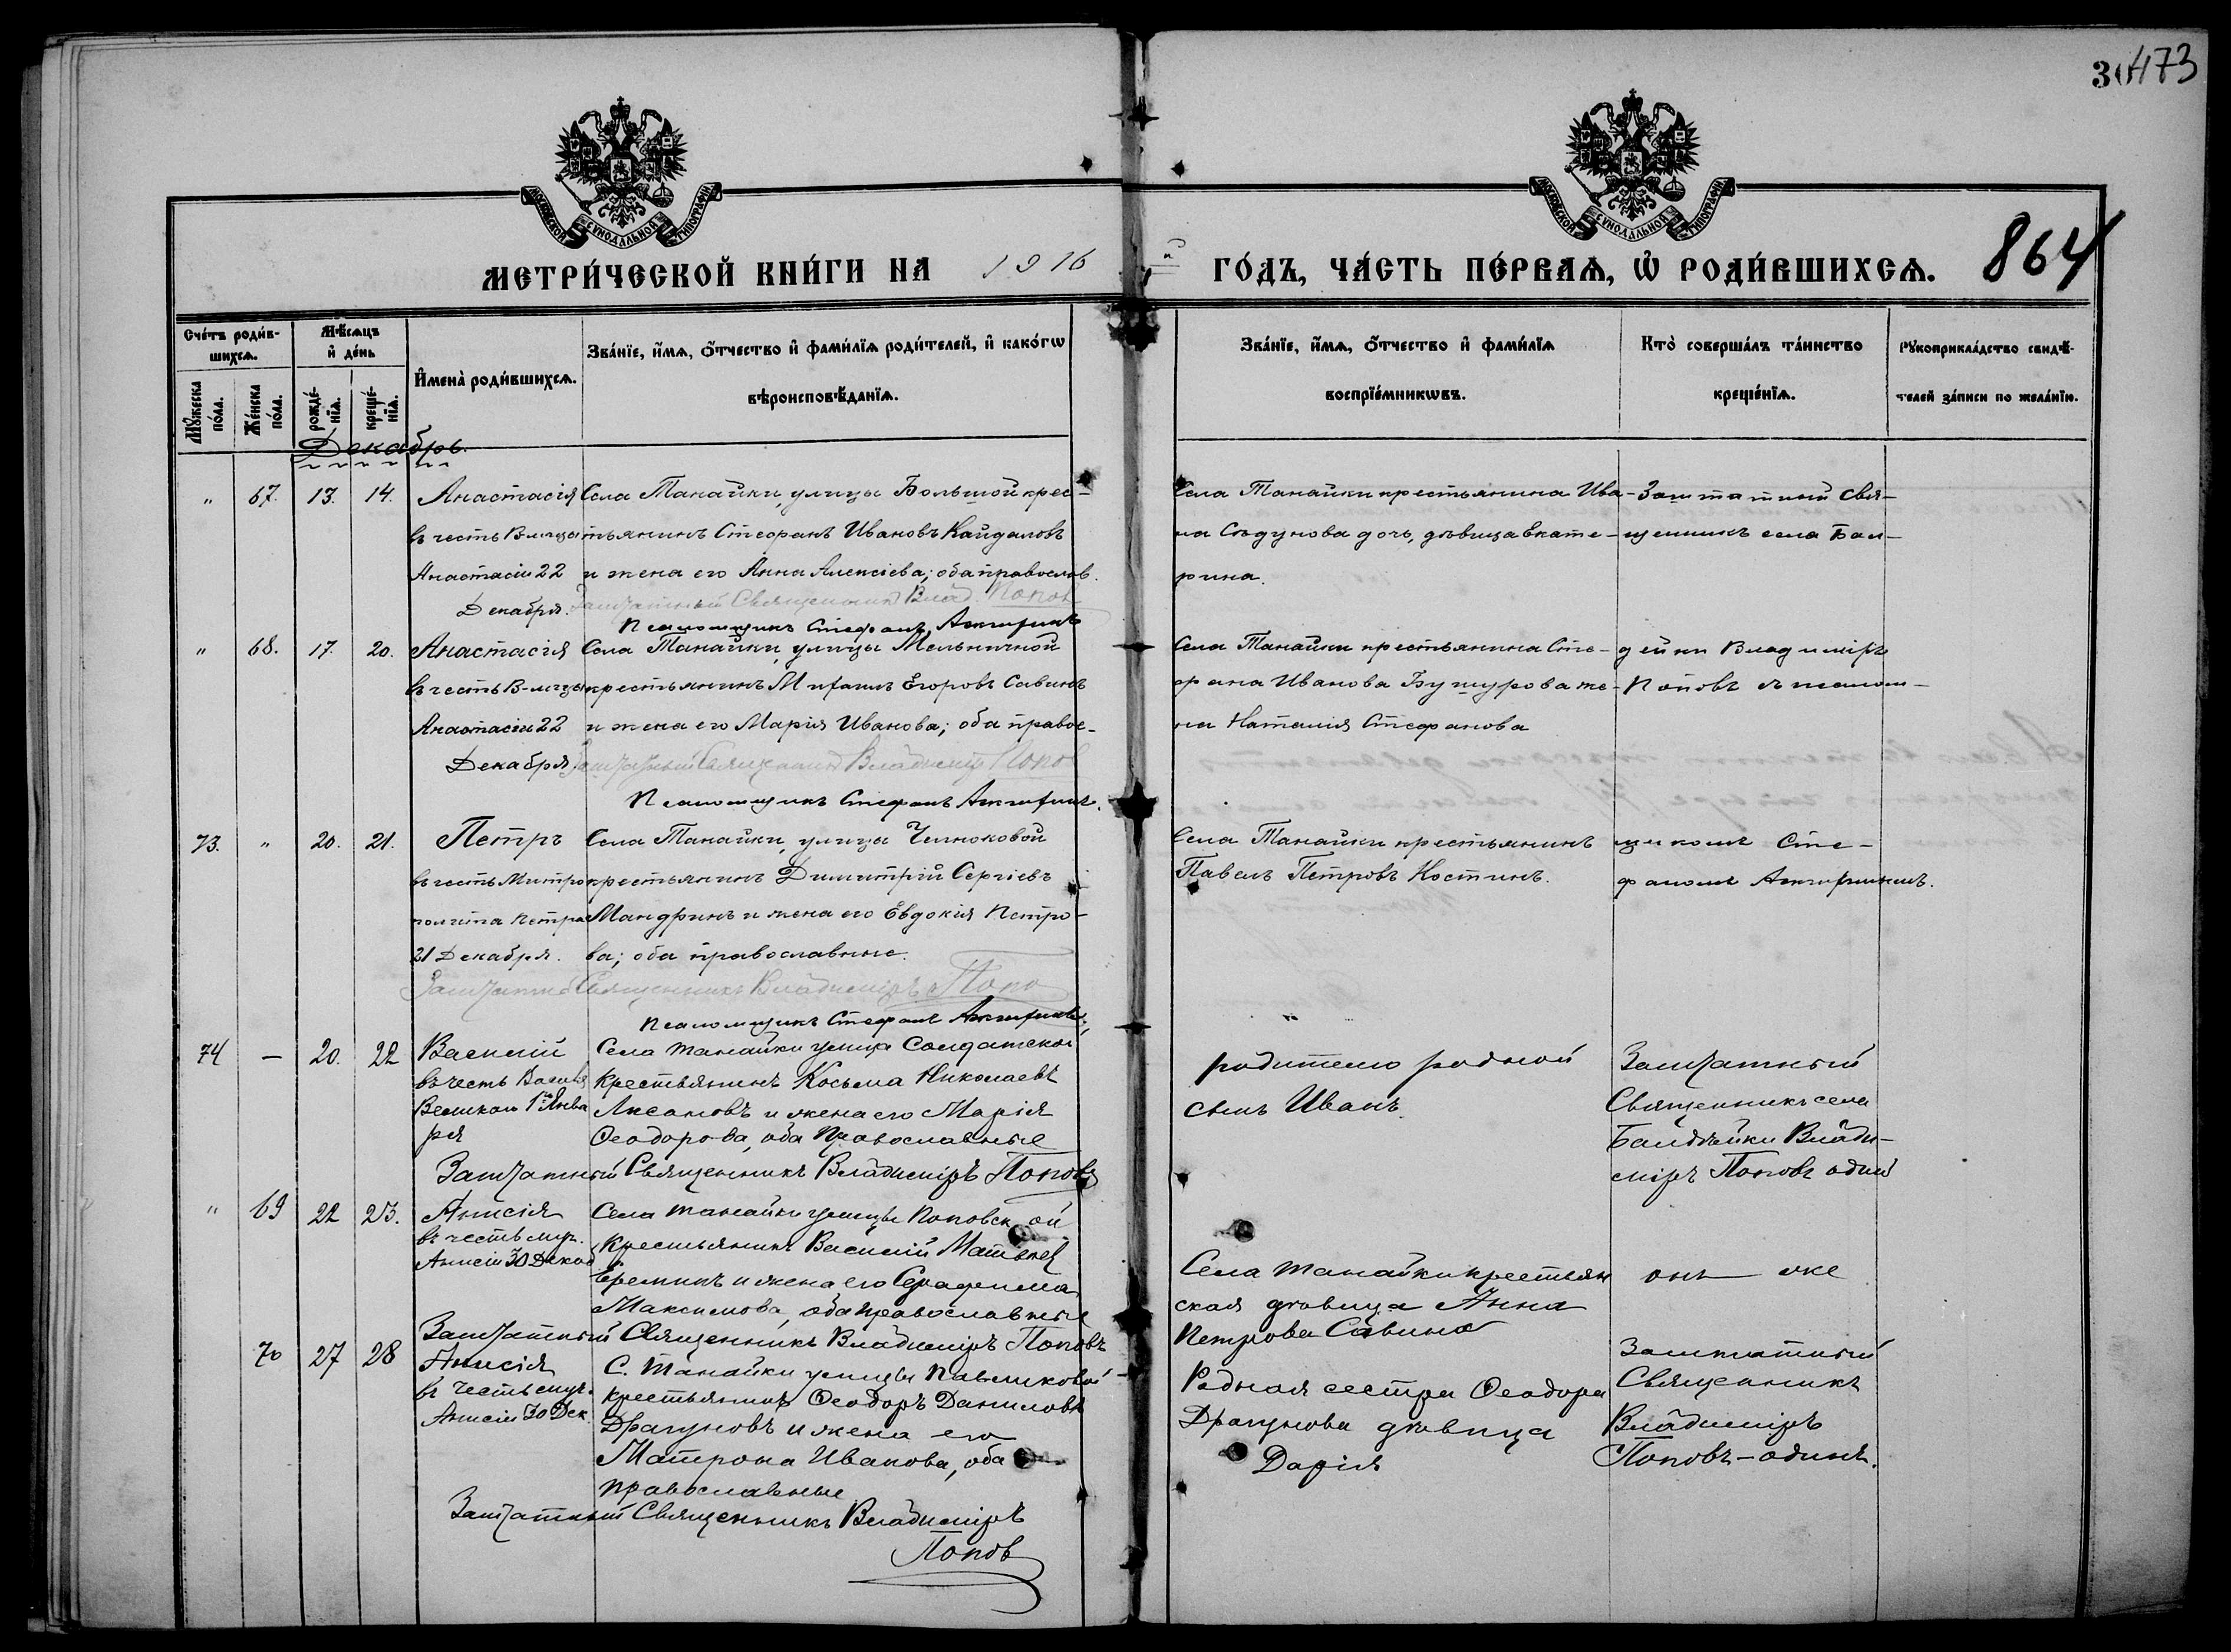 473
МОСКОВСКОЙ СѴНОДАЛЬНОЙ ТИПОГРАФІИ
МОСКОВСКОЙ СѴНОДАЛЬНОЙ ТИПОГРАФІИ
МЕТРИ́ЧЕСКОЙ КНИ́ГИ НА 1916 й ГО́ДЪ, ЧА́СТЬ ПЕ́РВАѦ, Ѡ РОДИ́ВШИХСѦ. 864
Сче́тъ роди́в-
шихсѧ.
Мꙋжеска по́ла.
Же́нска по́ла.
Мѣ́сѧцъ
и де́нь
рожде́-
нїѧ.
креще́-
нїѧ.
И҆мена̀ роди́вшихсѧ.
Зва́нїе, и҆́мѧ, ѻ҆́тчество и҆ фами́лїѧ роди́телей, и҆ како́гѡ
вѣроисповѣ́данїѧ.
Зва́нїе, и҆́мѧ, ѻ҆́тчество и҆ фами́лїѧ
воспрїе́мникѡвъ.
Кто̀ соверша́лъ та́инство
креще́нїѧ.
Рꙋкоприкла́дство свидѣ́-
телей за́писи по жела́нїю.
Декабрь.
" 67. 13. 14. Анастасія
въ честь В-мчцы
Анастасіи 22
Декабря.
Села Танайки, улицы Большой крес-
тьянинъ Стефанъ Ивановъ Кайдаловъ
и жена его Анна Алексіева; оба православ.
Заштатный Священникъ Влад. Попов
Псаломщикъ Стефанъ
Села Танайки крестьянина Ива-
на Сѣдунова дочь, дѣвица Екате-
рина.
Заштатный Свя-
щенникъ села Бал-
" 68. 17. 20. Анастасія
въ честь В-мчцы
Анастасіи 22
Декабря
Села Танайки, улицы Мельничной
крестьянинъ Михаилъ Егоровъ Савинъ
и жена его Марія Иванова; оба правос-
Заштатный Священникъ Владиміръ Попо
Псаломщикъ Стефанъ
Села Танайки крестьянина Сте-
фана Иванова же-
на Наталія Стефанова
дейки Владиміръ
Поповъ съ псалом-
73. " 20. 21. Петръ
въ честь Митро
полита Петра
21 Декабря.
Села Танайки, улицы Челноковой
крестьянинъ Димитрій Сергіевъ
Мандринъ и жена его Евдокія Петро-
ва; оба православные.
Заштатный Священникъ Владиміръ Попо
Псаломщикъ Стефанъ
Села Танайки крестьянинъ
Павелъ Петровъ Костинъ.
щикомъ Сте-
фаномъ
74 — 20. 22 Василій
въ честь Василія
Великаго 1го Янва
ря
Села Танайки улица Солдатской
Крестьянинъ Косьма Николаевъ
Аксановъ и жена его Марія
Ѳеодорова, оба Православные
Заштатный Священникъ Владиміръ Поповъ
родителю родной
сынъ Иванъ.
Заштатный
Священникъ села
Владі-
міръ Поповъ один
" 69 22 23. Анисія
въ честь муч.
Анисіи 30 Декаб
Села Танайки улицы Поповск ой
Крестьянинъ Василій Матвѣев
Ереминъ и жена его Серафима
Максимова, оба православные
Заштатный Священникъ Владиміръ Поповъ
Села Танайки крестьян
ская дѣвица Анна
Петрова Савина
онъ же
70 27 28 Анисія
въ честь муч.
Анисіи 30 Дек.
С. Танайки улицы Павликовой
крестьянинъ Ѳеодоръ Даниловъ
Драгуновъ и жена его
Матрона Иванова, оба
православные
Заштатный Священникъ Владиміръ
Попов
Родная сестра Ѳеодора
Драгунова дѣвица
Дарія
Заштатный
Священникъ
Владиміръ
Поповъ – одинъ.